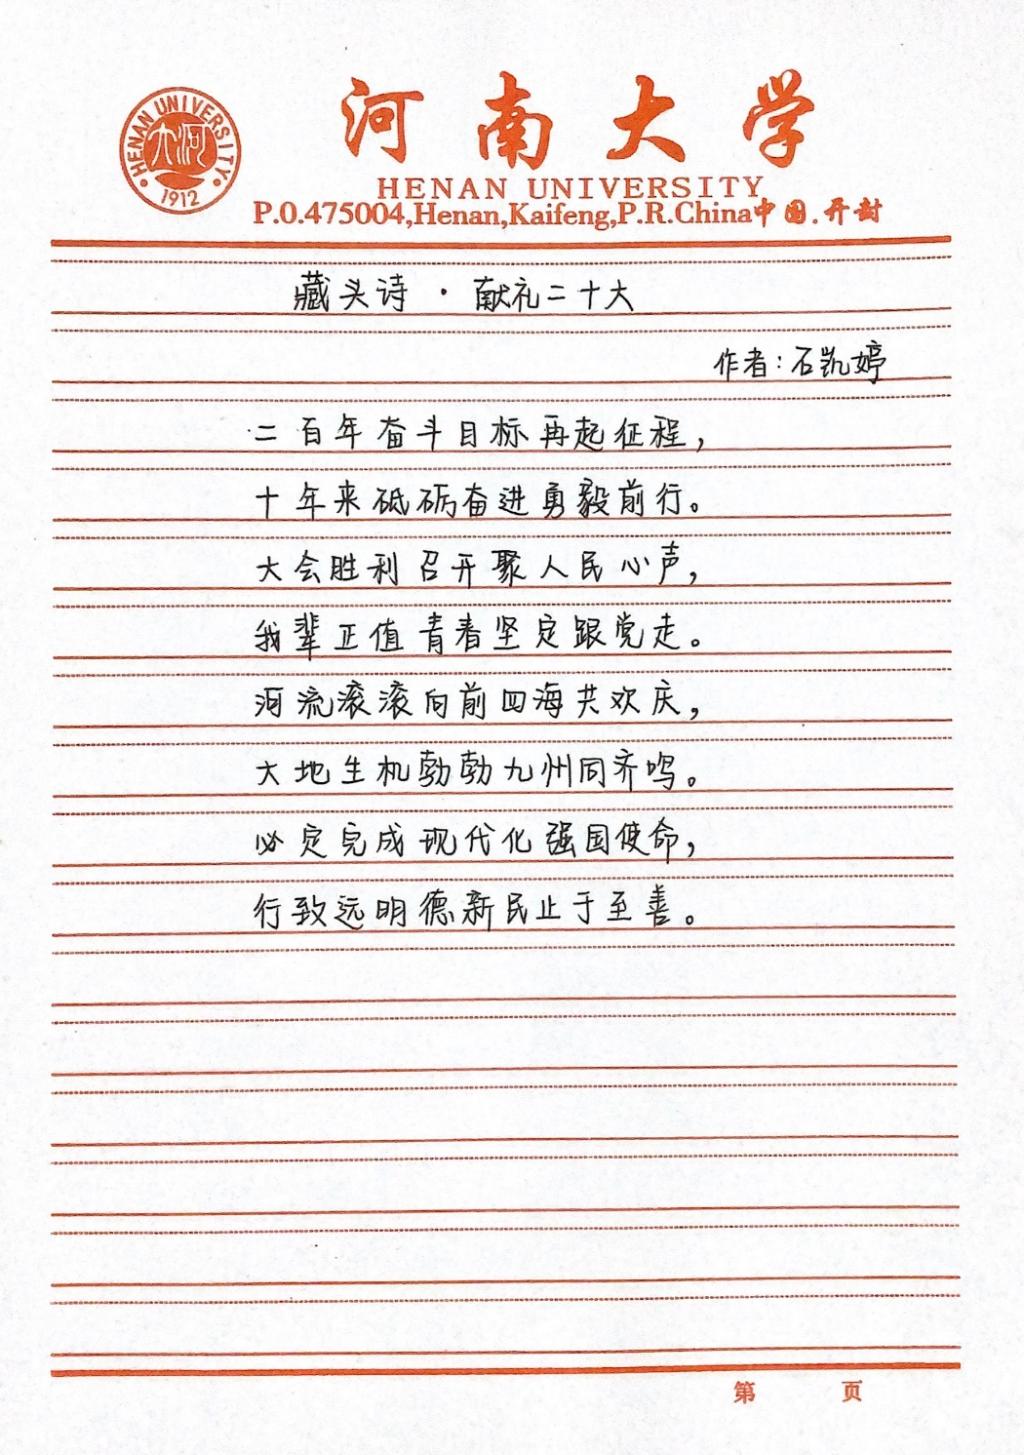 HENAN UNIVERSITY
大河
1912
河南大学
HENAN UNIVERSITY
P.O.475004,Henan,Kaifeng,P.R.China中国.开封
藏头诗·献礼二十大
作者:石凯婷
二百年奋斗目标再起征程,
十年来砥砺奋进勇毅前行。
大会胜利召开聚人民心声,
我辈正值青春坚定跟党走。
河流滚滚向前四海共欢庆,
大地生机勃勃九州同齐鸣。
必定完成现代化强国使命,
行致远明德新民止于至善。
第 页